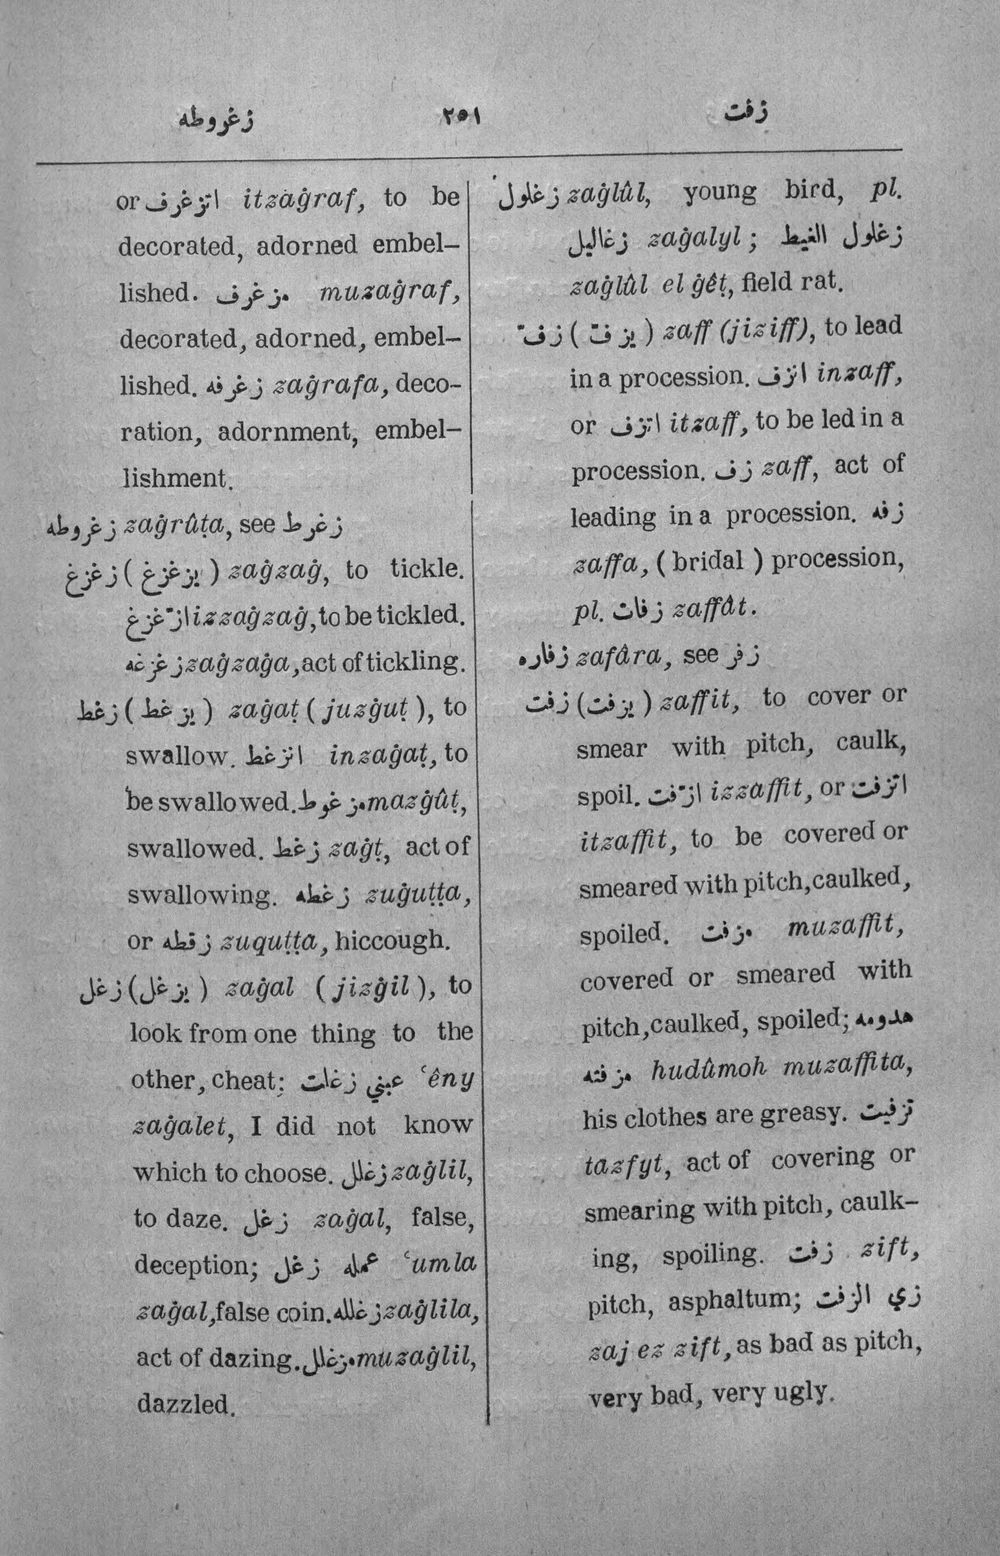 زغروطه ٢٥١ زفت
or اتزغرف itzaġraf, to be
decorated, adorned embel–
lished. مزغرف muzaġraf,
decorated, adorned, embel–
lished. زغرفه zaġrafa, deco–
ration, adornment, embel–
lishment.
زغروطه zaġrûṭa, see زغرط
زغزغ (يزغزغ) zaġzaġ, to tickle.
ازّغزغ izzaġzaġ, to be tickled.
زغزغه zaġzaġa, act of tickling.
زغط (يزغط) zaġaṭ (juzġuṭ), to
swallow. انزغط inzaġaṭ, to
be swallowed. مزغوط mazġûṭ,
swallowed. زغط zaġṭ, act of
swallowing. زغطه zuġuṭṭa,
or زقطه zuquṭṭa, hiccough.
زغل (يزغل) zaġal (jizġil), to
look from one thing to the
other, cheat; عيني زغلت ʿêny
zaġalet, I did not know
which to choose. زغلل zaġlil,
to daze. زغل zaġal, false,
deception; عمله زغل ʿumla
zaġal, false coin. زغلله zaġlila,
act of dazing. مزغلل muzaġlil,
dazzled.
زغلول zaġlûl, young bird, pl.
زغاليل zaġalyl; زغلول الغيط
zaġlûl el ġêṭ, field rat.
زفّ (يزفّ) zaff (jiziff), to lead
in a procession. انزف inzaff,
or اتزف itzaff, to be led in a
procession. زف zaff, act of
leading in a procession. زفه
zaffa, (bridal) procession,
pl. زفات zaffât.
زفاره zafâra, see زفر
زفت (يزفت) zaffit, to cover or
smear with pitch, caulk,
spoil. ازّفت izzaffit, or اتزفت
itzaffit, to be covered or
smeared with pitch, caulked,
spoiled. مزفت muzaffit,
covered or smeared with
pitch, caulked, spoiled; هدومه
مزفته hudûmoh muzaffita,
his clothes are greasy. تزفيت
tazfyt, act of covering or
smearing with pitch, caulk–
ing, spoiling. زفت zift,
pitch, asphaltum; زي الزفت
zaj ez zift, as bad as pitch,
very bad, very ugly.